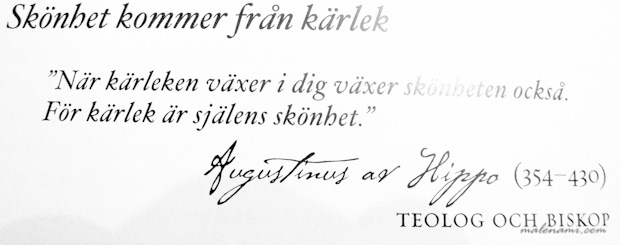 Skönhet kommer från kärlek
”När kärleken växer i dig växer skönheten också.
För kärlek är själens skönhet.”
Augustinus av Hippo (354–430)
TEOLOG OCH BISKOP
malenami.com